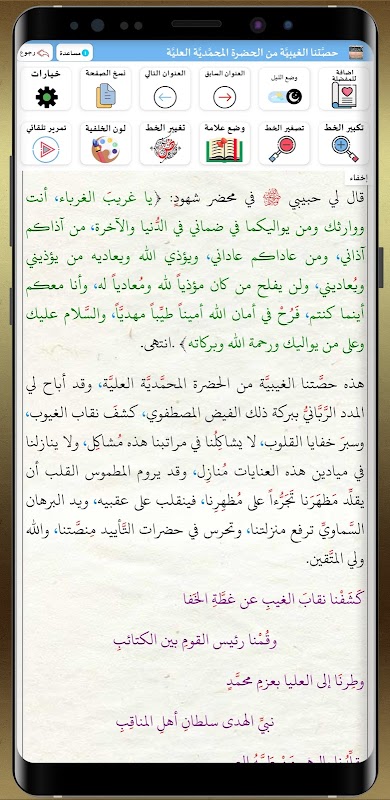 حصّتنا الغيبيَّة من الحضرة المحمَّديَّة العليَّة
مساعدة
رجوع
اضافة للمفضلة
وضع الليل
العنوان السابق
العنوان التالي
نسخ الصفحة
خيارات
تكبير الخط
تصغير الخط
وضع علامة
تغيير الخط
لون الخلفية
تمرير تلقائي
إخفاء
قال لي حبيبي ﷺ في محضر شهودٍ: ﴿يا غريبَ الغرباء، أنت
ووارثك ومن يواليكما في ضماني في الدُّنيا والآخرة، من آذاكم
آذاني، ومن عاداكم عاداني، ويؤذي الله ويعاديه من يؤذيني
ويُعاديني، ولن يفلح من كان مؤذياً لله ومُعادياً له، وأنا معكم
أينما كنتم، فَرُحْ في أمان الله أميناً طيِّباً مهديَّاً، والسَّلام عليك
وعلى من يواليك ورحمة الله وبركاته﴾ .انتهى.
هذه حصَّتنا الغيبيَّة من الحضرة المحمَّديَّة العليَّة، وقد أباح لي
المدد الرَّبَّانيُّ ببركة ذلك الفيض المصطفوي، كشفَ نقاب الغيوب،
وسبرَ خفايا القلوب، لا يشاكِلُنا في مراتبنا هذه مُشاكِل، ولا ينازلنا
في ميادين هذه العنايات مُنازِل، وقد يروم المطموس القلب أن
يقلِّد مَظهَرَنا تَجَرُّءاً على مُظهِرِنا، فينقلب على عقبيه، ويد البرهان
السَّماويِّ ترفع منزلتنا، وتحرس في حضرات التَّأييد مِنصَّتنا، والله
ولي المتَّقين.
كَشَفْنا نقابَ الغيبِ عن غطَّةِ الخَفا
وقُمْنا رئيس القومِ بين الكتائبِ
وطِرنَا إلى العليا بعزمِ محمَّدٍ
نبيِّ الهدى سلطانِ أهلِ المناقِبِ